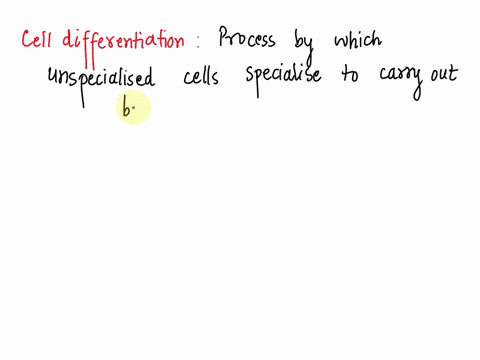 Cell differentiation : Process by which
unspecialised cells specialise to carry out
b